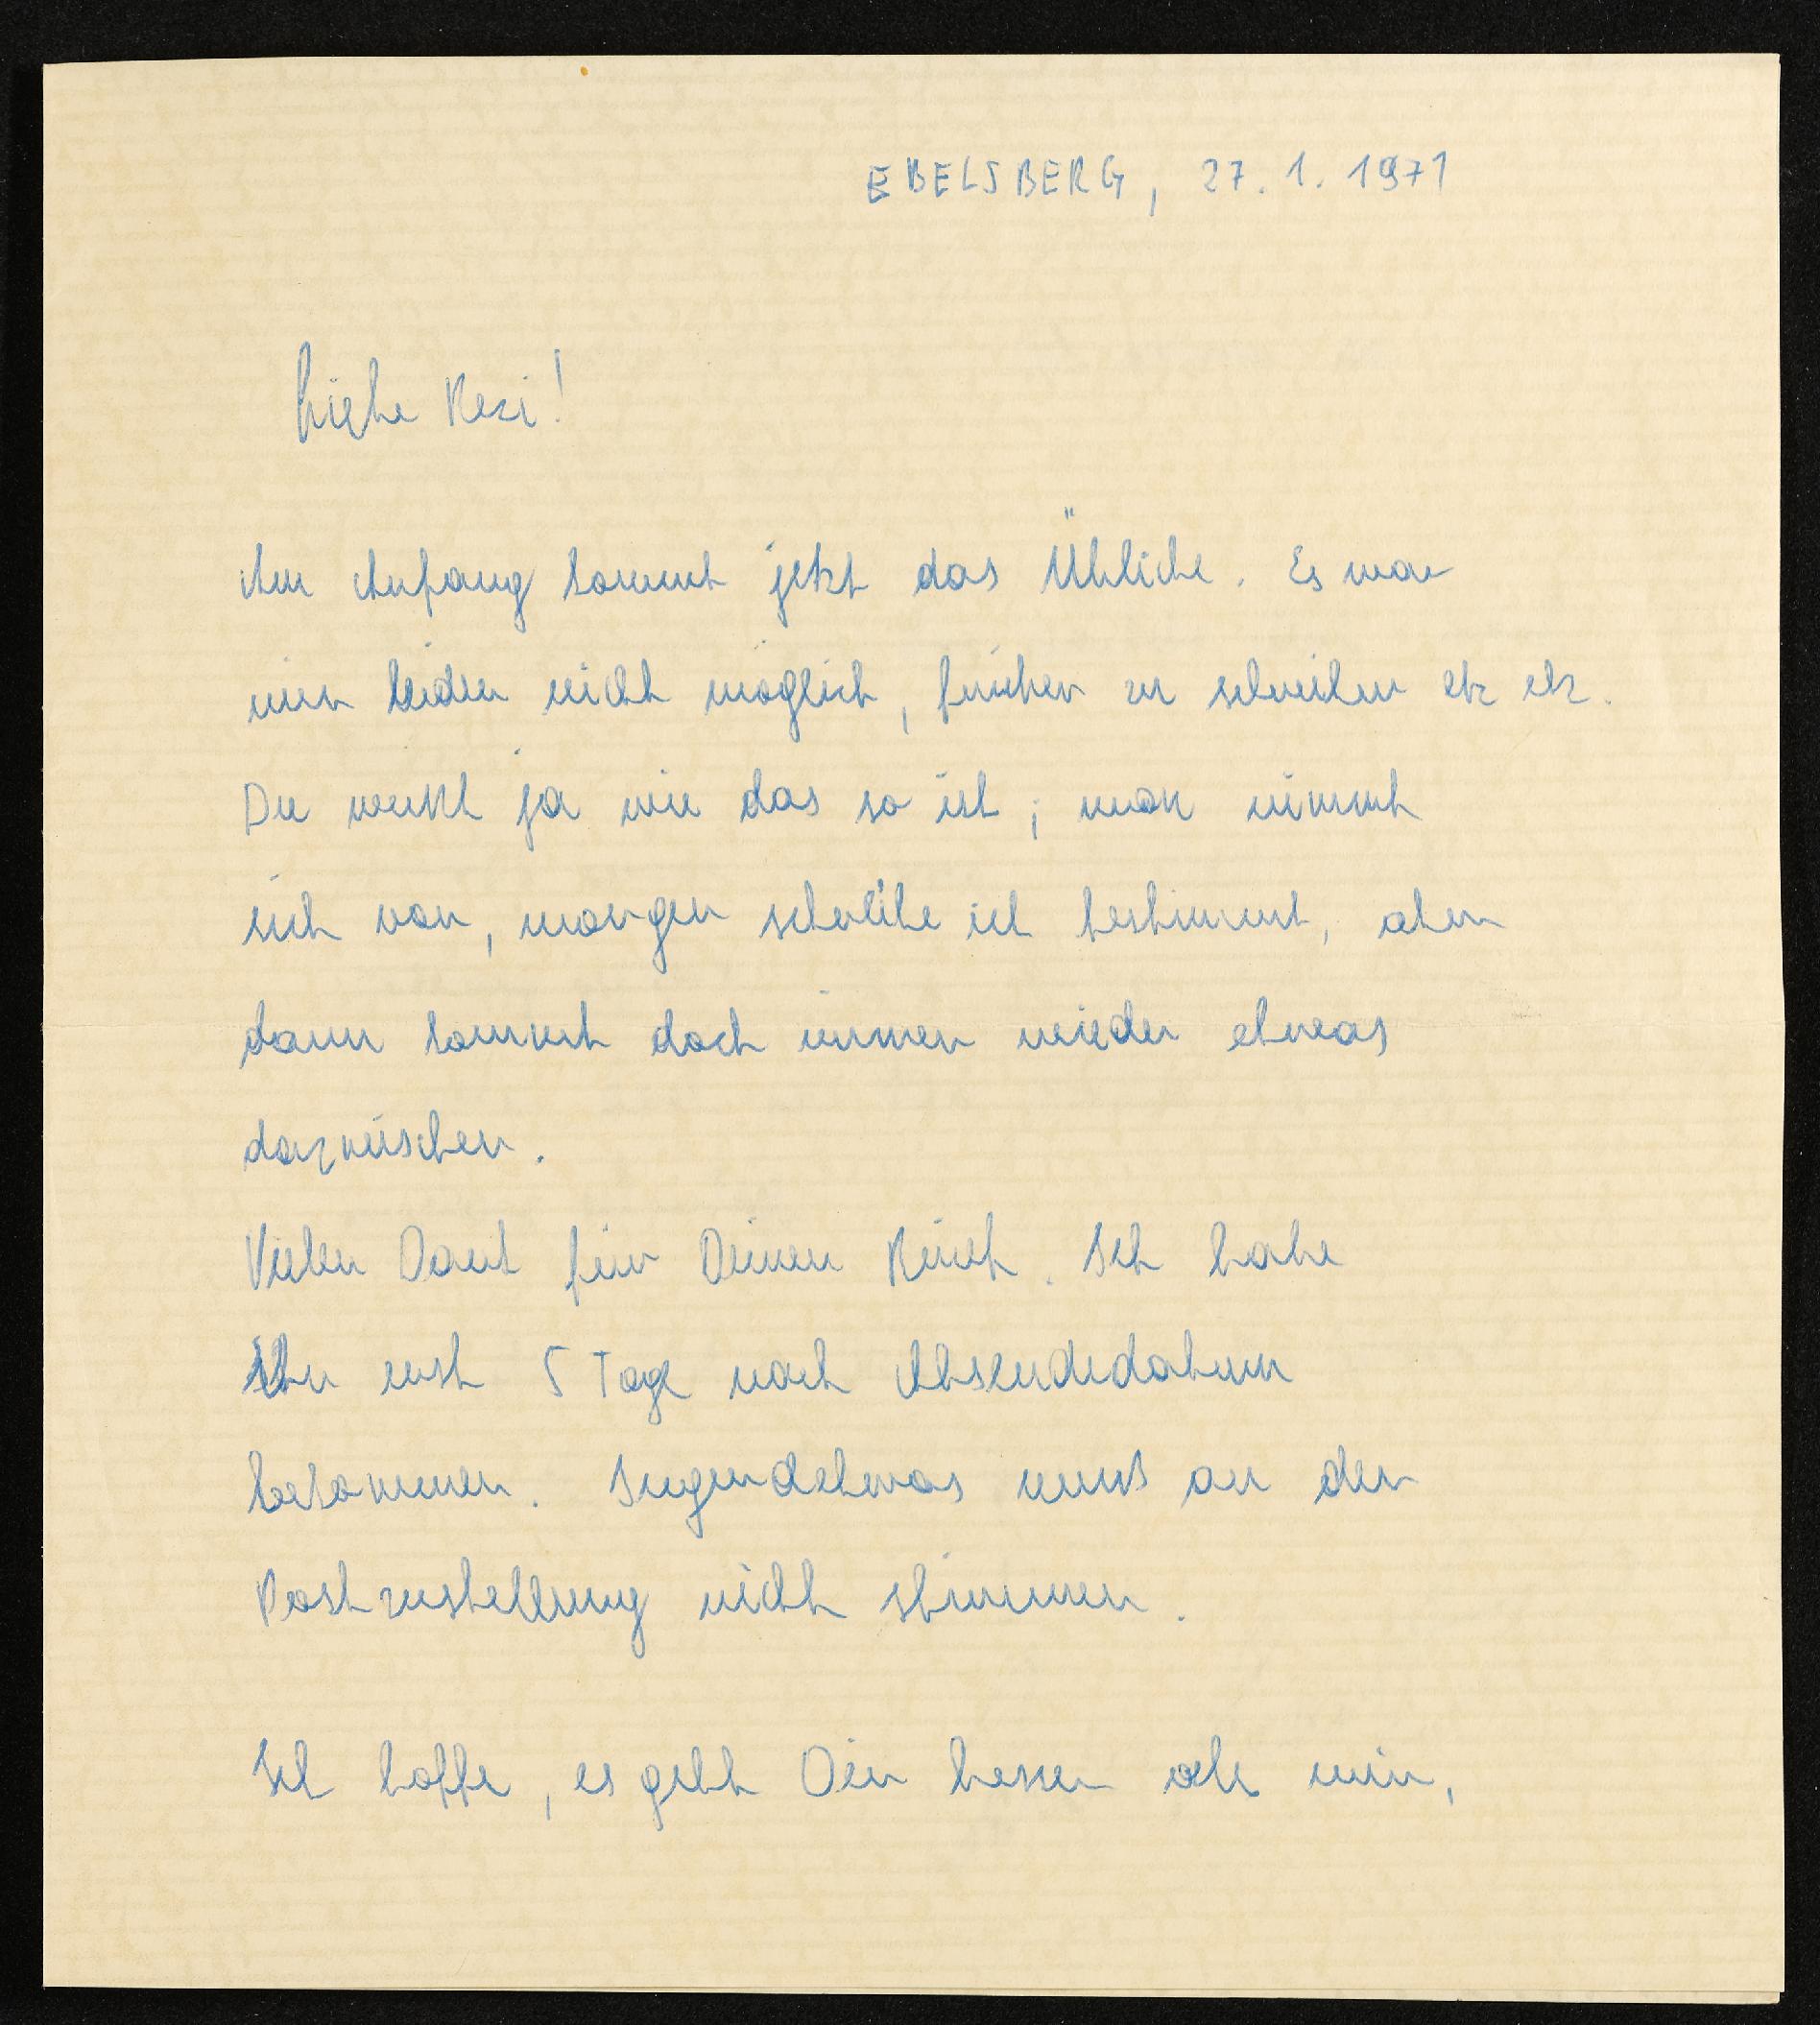 EBELSBERG, 27. 1. 1971
Liebe Resi!
Am Anfang kommt jetzt das Übliche. Es war
mir leider nicht möglich, früher zu schreiben etc etc.
Du weißt ja wie das so ist; man nimmt
sich vor, morgen schreibe ich bestimmt, aber
dann kommt doch immer wieder etwas
dazwischen.
Vielen Dank für Deinen Brief. Ich habe
ihn erst 5 Tage nach Absendedatum
bekommen. Irgendetwas muß an der
Postzustellung nicht stimmen.
Ich hoffe, es geht Dir besser als mir,